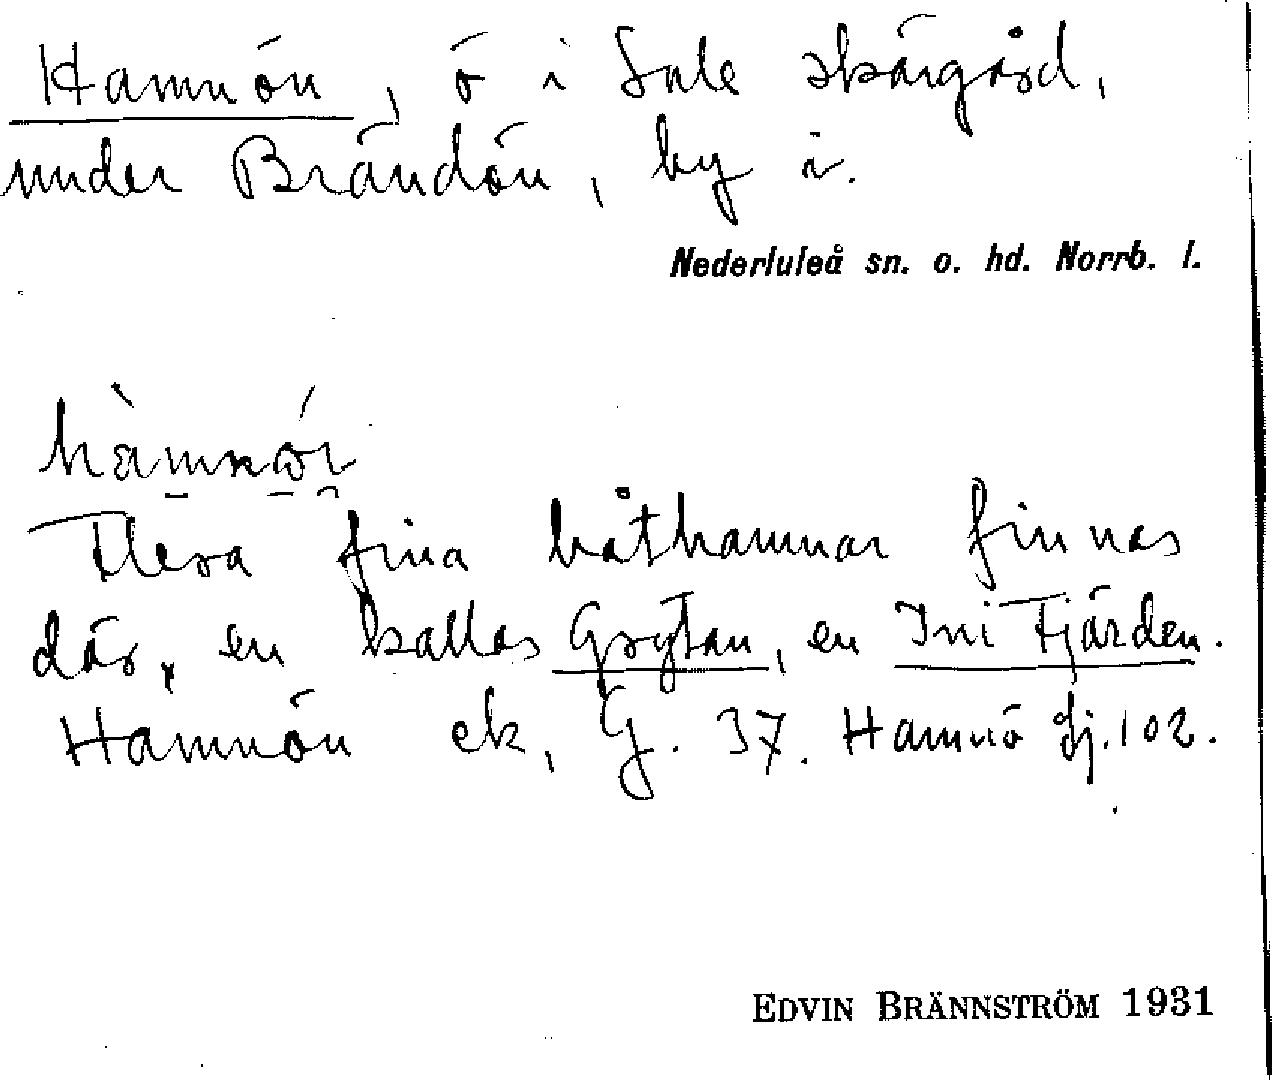 Hamnön, ö i Lule skärgård,
under Brändön, by i.
Nederluleå sn. o. hd. Norrb. l.
hàmnǿr
Flera fina båthamnar finnas
där, en kallas Grytan, en Ini Fjärden.
Hamnön ek, G. 37. Hamnö Gj. 102.
EDVIN BRÄNNSTRÖM 1931